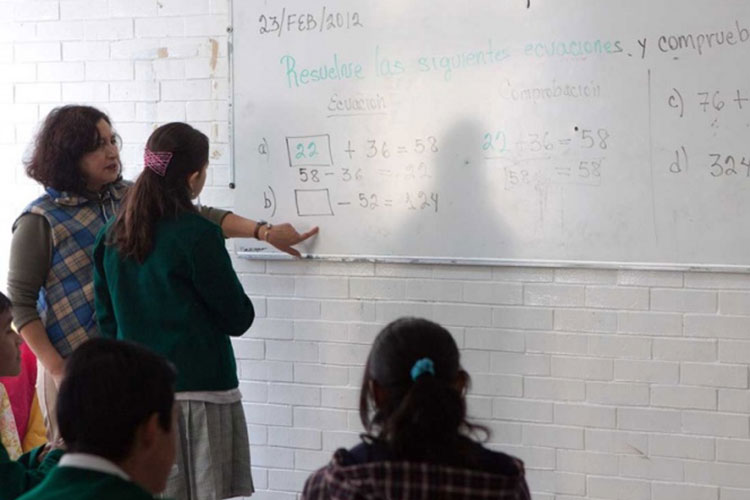 23/FEB/2012
Resuelve las siguientes ecuaciones y comprueb
Ecuación Comprobación
a) 22 + 36 = 58 22 + 36 = 58
58 - 36 = 22 58 = 58
b) - 52 = 124
c) 76 +
d) 324